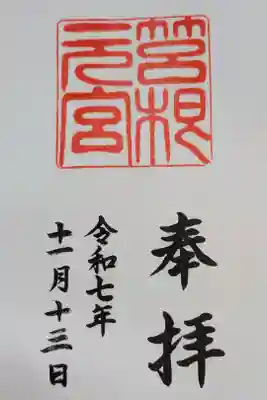 筥根
元宮
奉拝
令和七年
十一月十三日